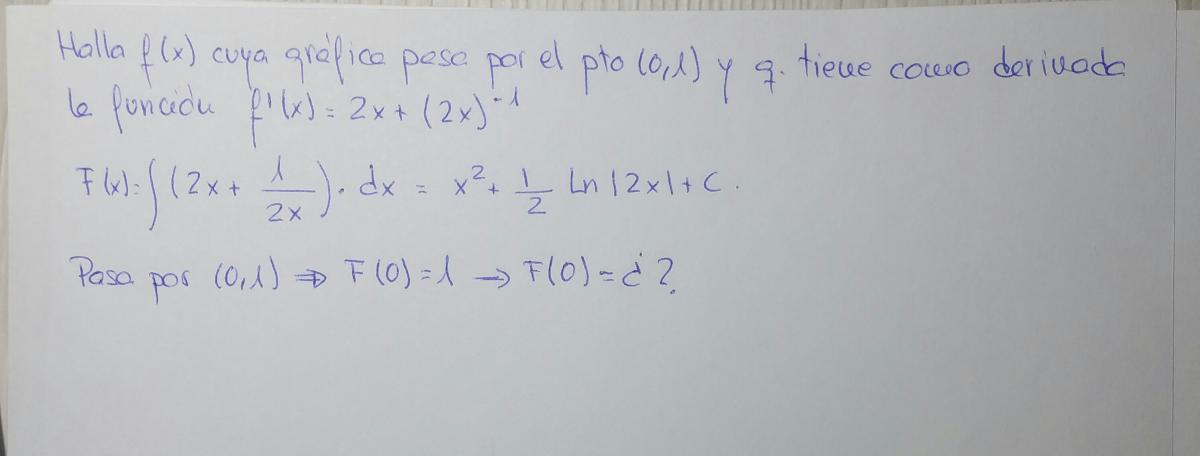 Halla f(x) cuya gráfica pasa por el pto (0,1) y q. tiene como derivada
la función f'(x) = 2x + (2x)^-1
F(x) = ∫(2x + 1/2x) · dx = x² + 1/2 Ln |2x| + C.
Pasa por (0,1) ⇒ F(0) = 1 → F(0) = ¿?